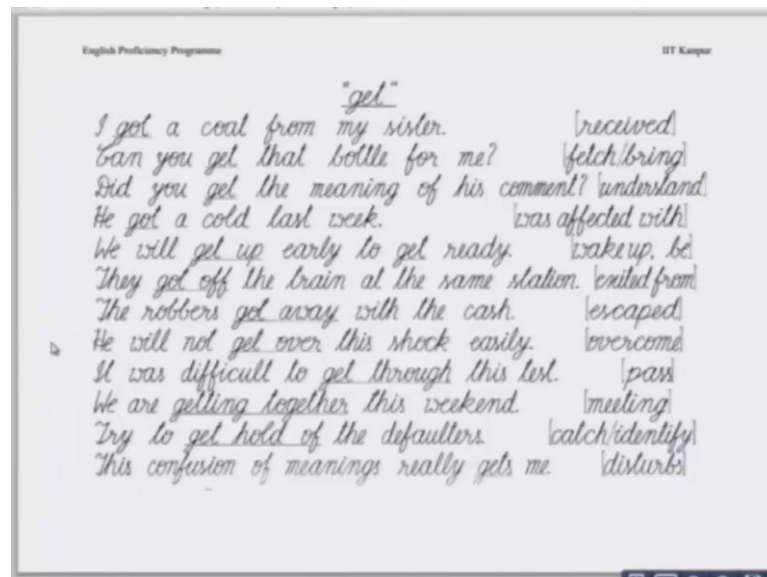 English Proficiency Programme IIT Kanpur
"get"
I got a coat from my sister. [received]
Can you get that bottle for me? [fetch/bring]
Did you get the meaning of his comment? [understand]
He got a cold last week. [was affected with]
We will get up early to get ready. [wake up, be]
They got off the train at the same station. [exited from]
The robbers got away with the cash. [escaped]
He will not get over this shock easily. [overcome]
It was difficult to get through this test. [pass]
We are getting together this weekend. [meeting]
Try to get hold of the defaulters. [catch/identify]
This confusion of meanings really gets me. [disturbs]